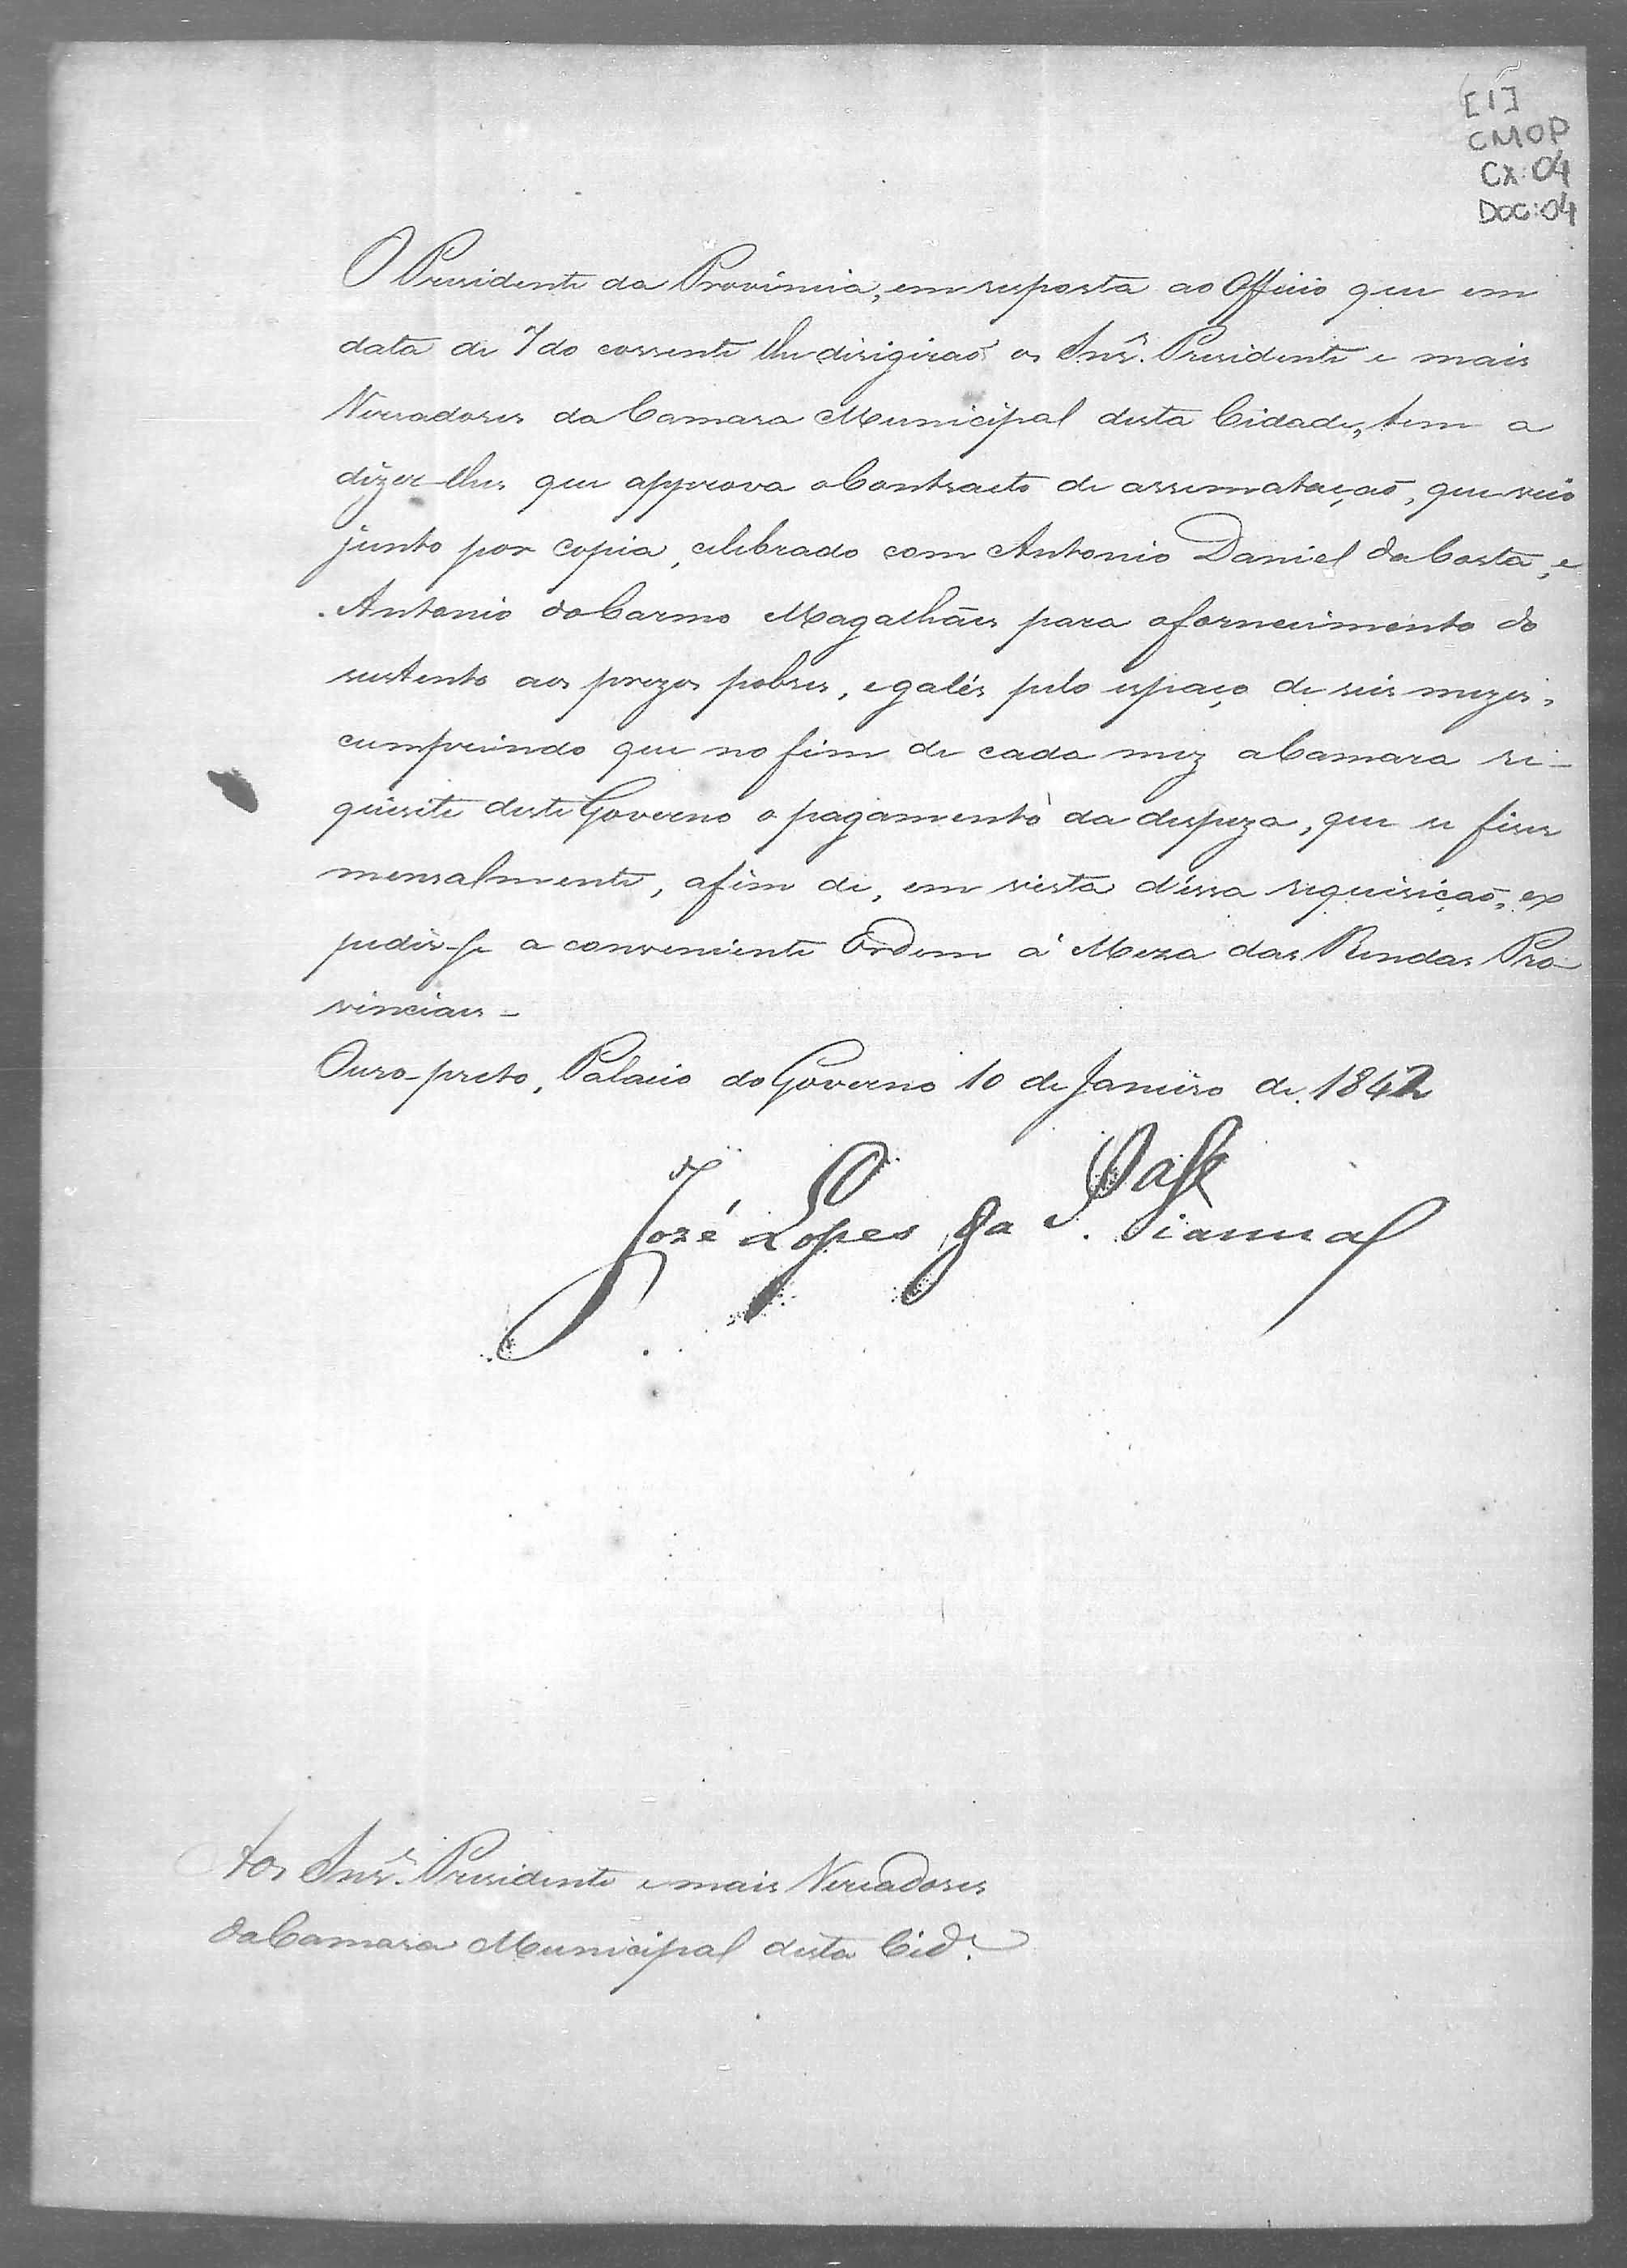 [1]
CMOP
CX: 04
DOC: 04
O Presidente da Provincia, em resposta ao Officio que em
data de 7 do corrente lhe dirigiraõ os Snr.es Presidente e mais
Vereadores da Camara Municipal desta Cidade, tem a
dizer-lhes que approva o Contracto de arremataçaõ, que veio
junto por copia, celebrado com Antonio Daniel da Costa, e
Antonio do Carmo Magalhães para o fornecimento do
sustento aos prezos pobres, e galés pelo espaço de seis mezes,
cumprindo que no fim de cada mez a Camara re-
quisite deste Governo o pagamento da despeza, que se fizer
mensalmente, afim de, em vista d'essa requisiçaõ, ex
pedir-se a conveniente Ordem á Meza das Rendas Pro-
vinciaes -
Ouro-preto, Palacio do Governo 10 de Janeiro de 1842
José Lopes da S.ª Vianna
Aos Snr.es Presidente e mais Vereadores
da Camara Municipal desta Cid.e